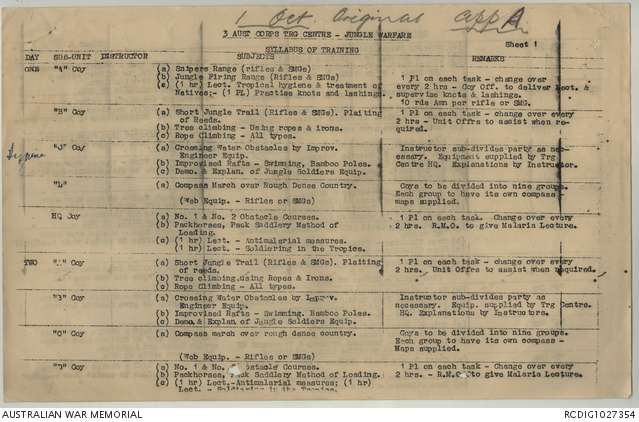 1 Oct. Original App A
3 AUST CORPS TRG CENTRE - JUNGLE WARFARE
SYLLABUS OF TRAINING
Sheet 1
DAY SUB-UNIT INSTRUCTOR SUBJECTS REMARKS
ONE "A" Coy (a) Snipers Range (rifles & SMGs)
(b) Jungle Firing Range (Rifles & SMGs) 1 Pl on each task - change over
(c) (1 hr) Lect. Tropical hygiene & treatment of every 2 hrs - Coy Off. to deliver Lect. &
Natives;- (1 PL) Practise knots and lashings. supervise knots & lashings.
10 rds Amn per rifle or SMG.
"B" Coy (a) Short Jungle Trail (Rifles & SMGs). Plaiting 1 Pl on each task - change over every
of Reeds. 2 hrs - Unit Offrs to assist when re-
(b) Tree climbing - Using ropes & irons. quired.
(c) Rope Climbing - All types.
Hygiene
Coy (a) Crossing Water Obstacles by Improv. Instructor sub-divides party as nec-
Engineer Equip. essary. Equipment supplied by Trg
(b) Improvised Rafts - Swimming, Bamboo Poles. Centre HQ. Explanations by Instructor.
(c) Demo. & Explan. of Jungle Soldiers Equip.
(a) Compass March over Rough Dense Country. Coys to be divided into nine groups.
Each group to have its own compass -
(Web Equip. - Rifles or SMGs) maps supplied.
HQ Coy (a) No. 1 & No. 2 Obstacle Courses. 1 Pl on each task. Change over every
(b) Packhorses, Pack Saddlery Method of 2 hrs. R.M.O. to give Malaria Lecture.
Loading.
(c) (1 hr) Lect. - Antimalarial measures.
(1 hr) Lect. - Soldiering in the Tropics.
TWO Coy (a) Short Jungle Trail (Rifles & SMGs). Plaiting 1 Pl on each task - change over every
of reeds. 2 hrs. Unit Offrs to assist when required.
(b) Tree climbing.Using Ropes & Irons.
(c) Rope Climbing - All types.
"B" Coy (a) Crossing Water Obstacles by Improv. Instructor sub-divides party as
Engineer Equip. necessary. Equip. supplied by Trg Centre.
(b) Improvised Rafts - Swimming. Bamboo Poles. HQ. Explanations by Instructors.
(c) Demo. & Explan of Jungle Soldiers Equip.
"C" Coy (a) Compass march over rough dense country. Coys to be divided into nine groups.
Each group to have its own compass -
(Web Equip. - Rifles or SMGs) Maps supplied.
"D" Coy (a) No. 1 & No. Obstacle Courses. 1 Pl on each task - Change over every
(b) Packhorses, Pack Saddlery Method of Loading. 2 hrs. - R.M.O. to give Malaria Lecture.
(c) (1 hr) Lect.-Antimalarial measures; (1 hr)
Lect. - Soldiering in the Tropics.
AUSTRALIAN WAR MEMORIAL RCDIG1027354